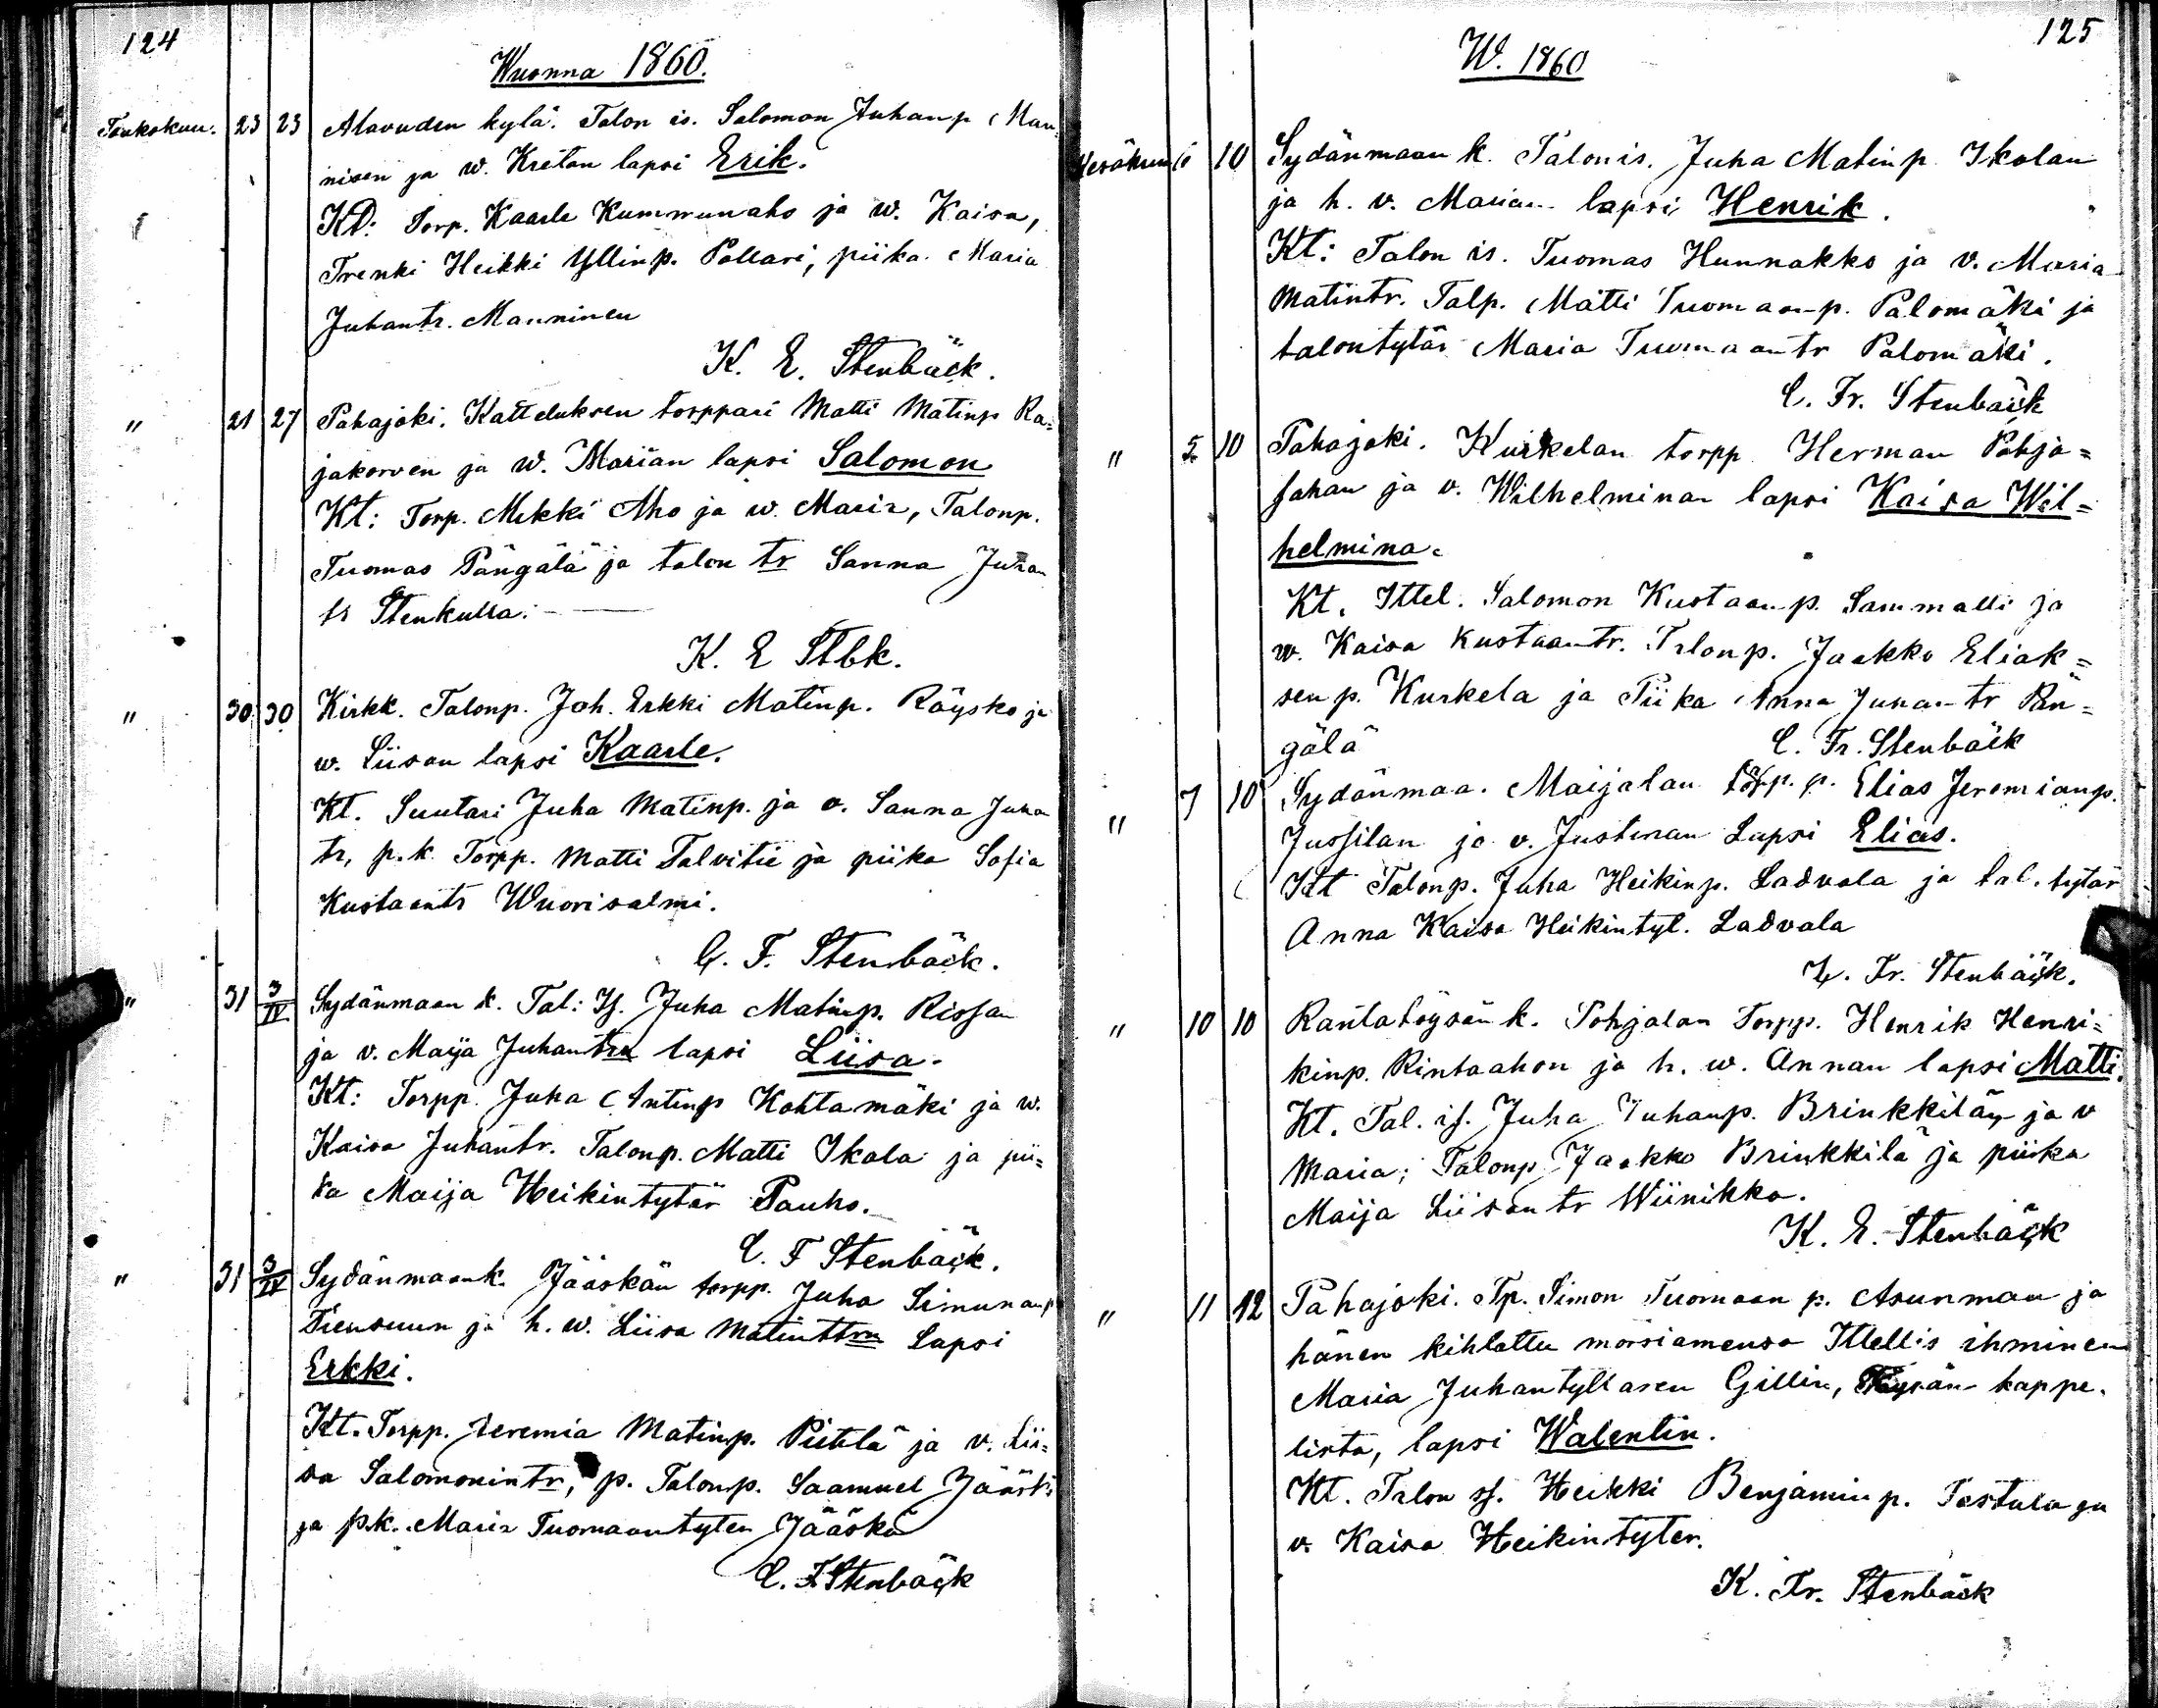 124
Wuonna 1860.
Toukokuu. 23 23 Alavuden kylä. Talon is. Salomon Juhanp Man-
nisen ja w. Kretan lapsi Erik.
KD: Torp. Kaarle Kummunaho ja w. Kaisa,
Trenki Heikki Yllinp. Pollari, piika Maria
Juhantr. Manninen
K. E. Stenbäck.
" 21 27 Pahajoki. Katteluksen torppari Matti Matinp Ra=
jakorven ja w. Marian lapsi Salomon
Kt: Torp. Mikki Aho ja w. Maria, Talonp.
Tuomas Pängälä ja talon tr Sanna Juhan
tr Stenkulla.
K. E Stbk.
" 30 30 Kirkk. Talonp. Joh. Erkki Matinp. Räysko ja
w. Liisan lapsi Kaarle.
Kt. Suutari Juha Matinp. ja v. Sanna Juha
tr, p.k. Torpp. Matti Talvitie ja piika Sofia
Kustaantr Wuorisalmi.
C. F. Stenbäck.
" 31 3/IV Sydänmaan k. Tal: Is. Juha Matinp. Rissan
ja v. Maija Juhantrn lapsi Liisa.
Kt: Torpp. Juha Antinp Kohtamäki ja w.
Kaisa Juhantr. Talonp. Matti Ikola ja pii=
ka Maija Heikintytär Pauho.
C. F Stenbäck.
" 31 3/IV Sydänmaank. Jääskän torpp. Juha Simunanp
Tiensuun ja h. w. Liisa Matinttrn Lapsi
Erkki.
Kt. Torpp. Jeremia Matinp. Pietilä ja v. Lii=
sa Salomonintr, p. Talonp. Saamuel Jääsk
ja p.k. Maria Tuomaantyten Jääskä
C. F Stenbäck
125
W. 1860
Kesäkuu 6 10 Sydänmaan k. Talonis. Juha Matinp. Ikolan
ja h. v. Marian lapsi Henrik.
Kt: Talon is. Tuomas Hunnakko ja v. Maria
Matintr. Talp. Matti Tuomaanp. Palomäki ja
talontytär Maria Tuomaantr Palomäki.
C. Fr. Stenbäck
" 5 10 Pahajoki. Kurkelan torpp. Herman Pohja=
sahan ja v. Wilhelminan lapsi Kaisa Wil=
helmina.
Kt. Ittel. Salomon Kustaanp. Sammalli ja
w. Kaisa Kustaantr. Talonp. Jaakko Eliak=
sen p. Kurkela ja Piika Anna Juhantr Pän=
gälä C. Fr. Stenbäck
" 7 10 Sydänmaa. Maijalan torp. p. Elias Jeremianp.
Jussilan ja v. Justinan Lapsi Elias.
Kt Talonp. Juha Heikinp. Ladvala ja tal. tytär
Anna Kaisa Heikintyt. Ladvala
C. Fr. Stenbäck.
" 10 10 Rantatöysän k. Pohjalan Torpp. Henrik Henri=
kinp. Rintaahon ja h. w. Annan lapsi Matti.
Kt. Tal. is. Juha Juhanp. Brinkkilän ja v
Maria; Talonp. Jaakko Brinkkilä ja piika
Maija Liisantr Wiinikka.
K. E. Stenbäck
" 11 12 Pahajoki. Tp. Simon Tuomaan p. Asunmaan ja
hänen kihlattu morsiamensa Ittellis ihminen
Maria Juhantyttären Gillin, Töysän kappe-
lista, lapsi Walentin.
Kt. Talon is. Heikki Benjamin p. Tastula ja
v. Kaisa Heikintyter.
K. Fr. Stenbäck